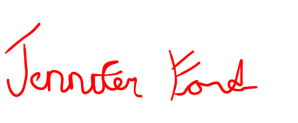 Jennifer Ford